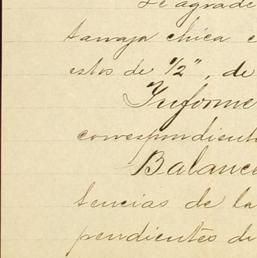 Se agrade
tarraja chica e
estos de 1/2", de
Informe
correspondient
Balance
tencias de la
pendientes de